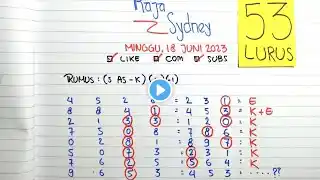 Raja
Sydney
53
LURUS
MINGGU, 18 JUNI 2023
LIKE COM SUBS
RUMUS: (3 AS - K)
4 5 2 6 = 2 3 1 = E
8 8 4 1 = 4 5 3 = K+E
2 1 3 3 = 1 2 0 = K
7 5 0 8 = 7 8 6 = K
0 2 8 1 = 8 9 7 = K
5 0 7 3 = 2 3 1 = K
7 6 2 2 = 5 6 4 = K
9 6 5 3 = 4 5 3 = .....??